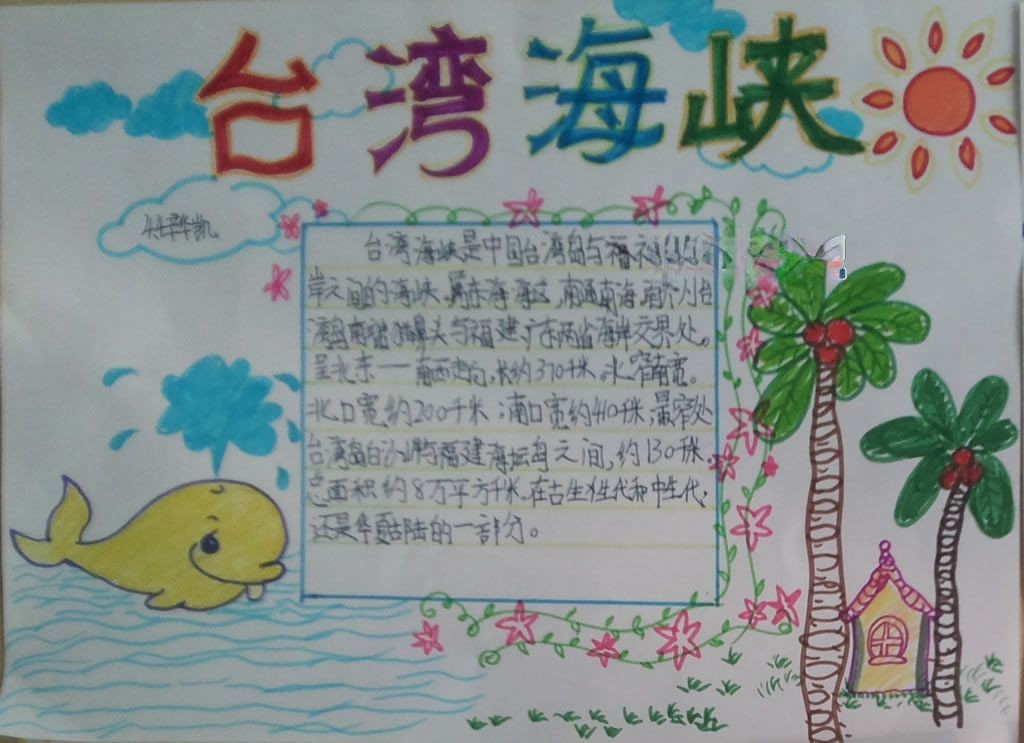 台湾海峡
4.4
台湾海峡是中国台湾岛与福
岸之间的海峡，属东海海区，南通南海，南界为台
湾岛南端猫鼻头与福建广东两省海岸交界处。
呈北东——南西走向，长约370千米。北窄南宽。
北口宽约200千米；南口宽约410千米，最窄处
台湾岛白沙岬与福建海坛岛之间，约130千米。
总面积约8万平方千米。在古生代和中生代，
还是华夏古陆的一部分。